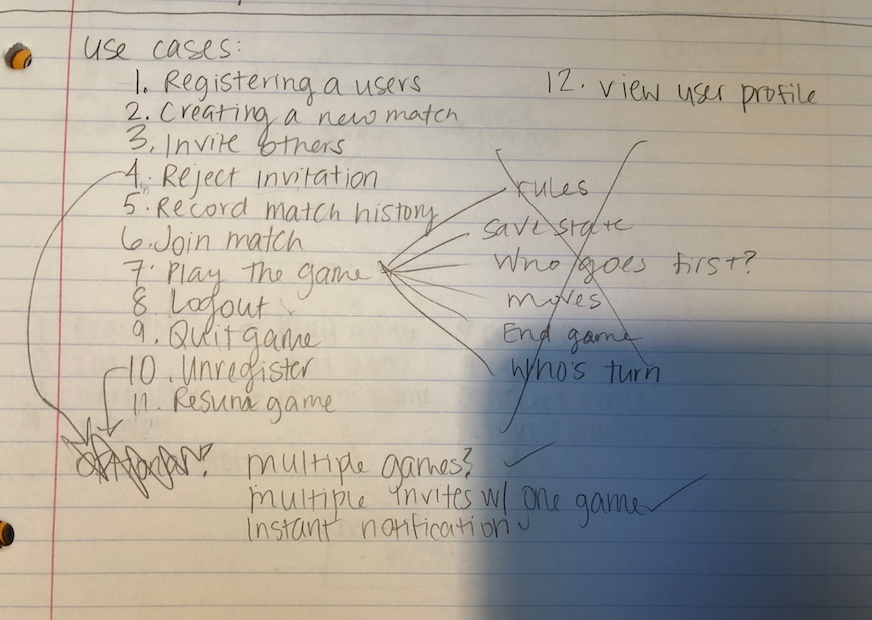 use cases:
1. Registering a users
2. Creating a new match
3. Invite others
4. Reject invitation
5. Record match history
6. Join match
7. Play the game
8. Logout
9. Quit game
10. Unregister
11. Resume game
12. view user profile
rules
save state
Who goes first?
moves
End game
Who's turn
multiple games?
multiple invites w/ one game
Instant notification